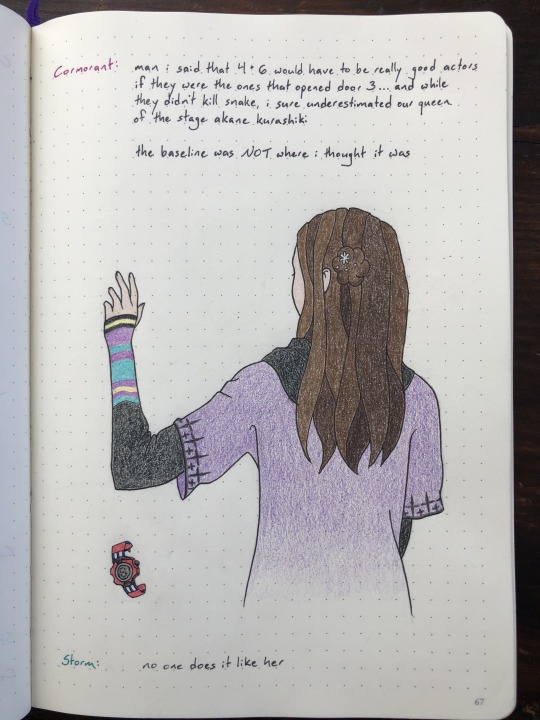 Cormorant: man i said that 4+6 would have to be really good actors
if they were the ones that opened door 3... and while
they didn't kill snake, i sure underestimated our queen
of the stage akane kurashiki
the baseline was NOT where i thought it was
Storm: no one does it like her
67